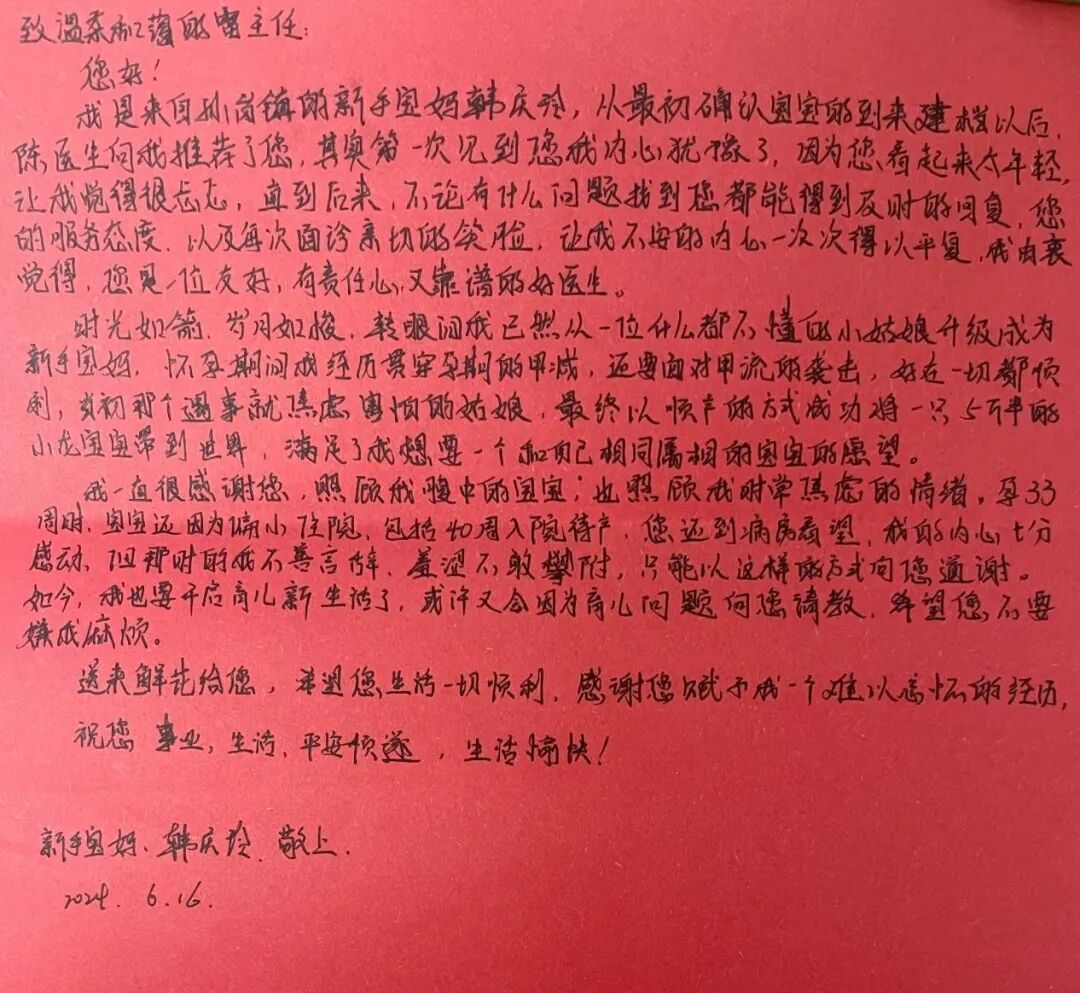 致温柔和蔼的雷主任:
您好!
我是来自孙岗镇的新手宝妈韩庆玲,从最初确认宝宝的到来建档以后,
陈医生向我推荐了您,其实第一次见到您我内心犹豫了,因为您看起来太年轻,
让我觉得很忐忑,直到后来,不论有什么问题找到您都能得到及时的回复,您
的服务态度,以及每次面诊亲切的笑脸,让我不安的内心一次次得以平复,我由衷
觉得,您是一位友好,有责任心,又靠谱的好医生。
时光如箭,岁月如梭,转眼间我已然从一位什么都不懂的小姑娘升级成为
新手宝妈,怀孕期间我经历贯穿孕期的甲减,还要面对甲流的袭击,好在一切都顺
利,当初那个遇事就焦虑害怕的姑娘,最终以顺产的方式成功将一只5斤半的
小龙宝宝带到世界,满足了我想要一个和自己相同属相的宝宝的愿望。
我一直很感谢您,照顾我腹中的宝宝;也照顾我时常焦虑的情绪。孕33
周时、宝宝还因为偏小住院,包括40周入院待产,您还到病房看望,我的内心十分
感动,但那时的我不善言辞、羞涩不敢攀附,只能以这样的方式向您道谢。
如今,我也要开启育儿新生活了,或许又会因为育儿问题向您请教,希望您不要
嫌我麻烦。
送来鲜花给您,希望您生活一切顺利,感谢您赋予我一个难以忘怀的经历,
祝您事业,生活,平安顺遂,生活愉快!
新手宝妈、韩庆玲 敬上.
2024. 6.16.